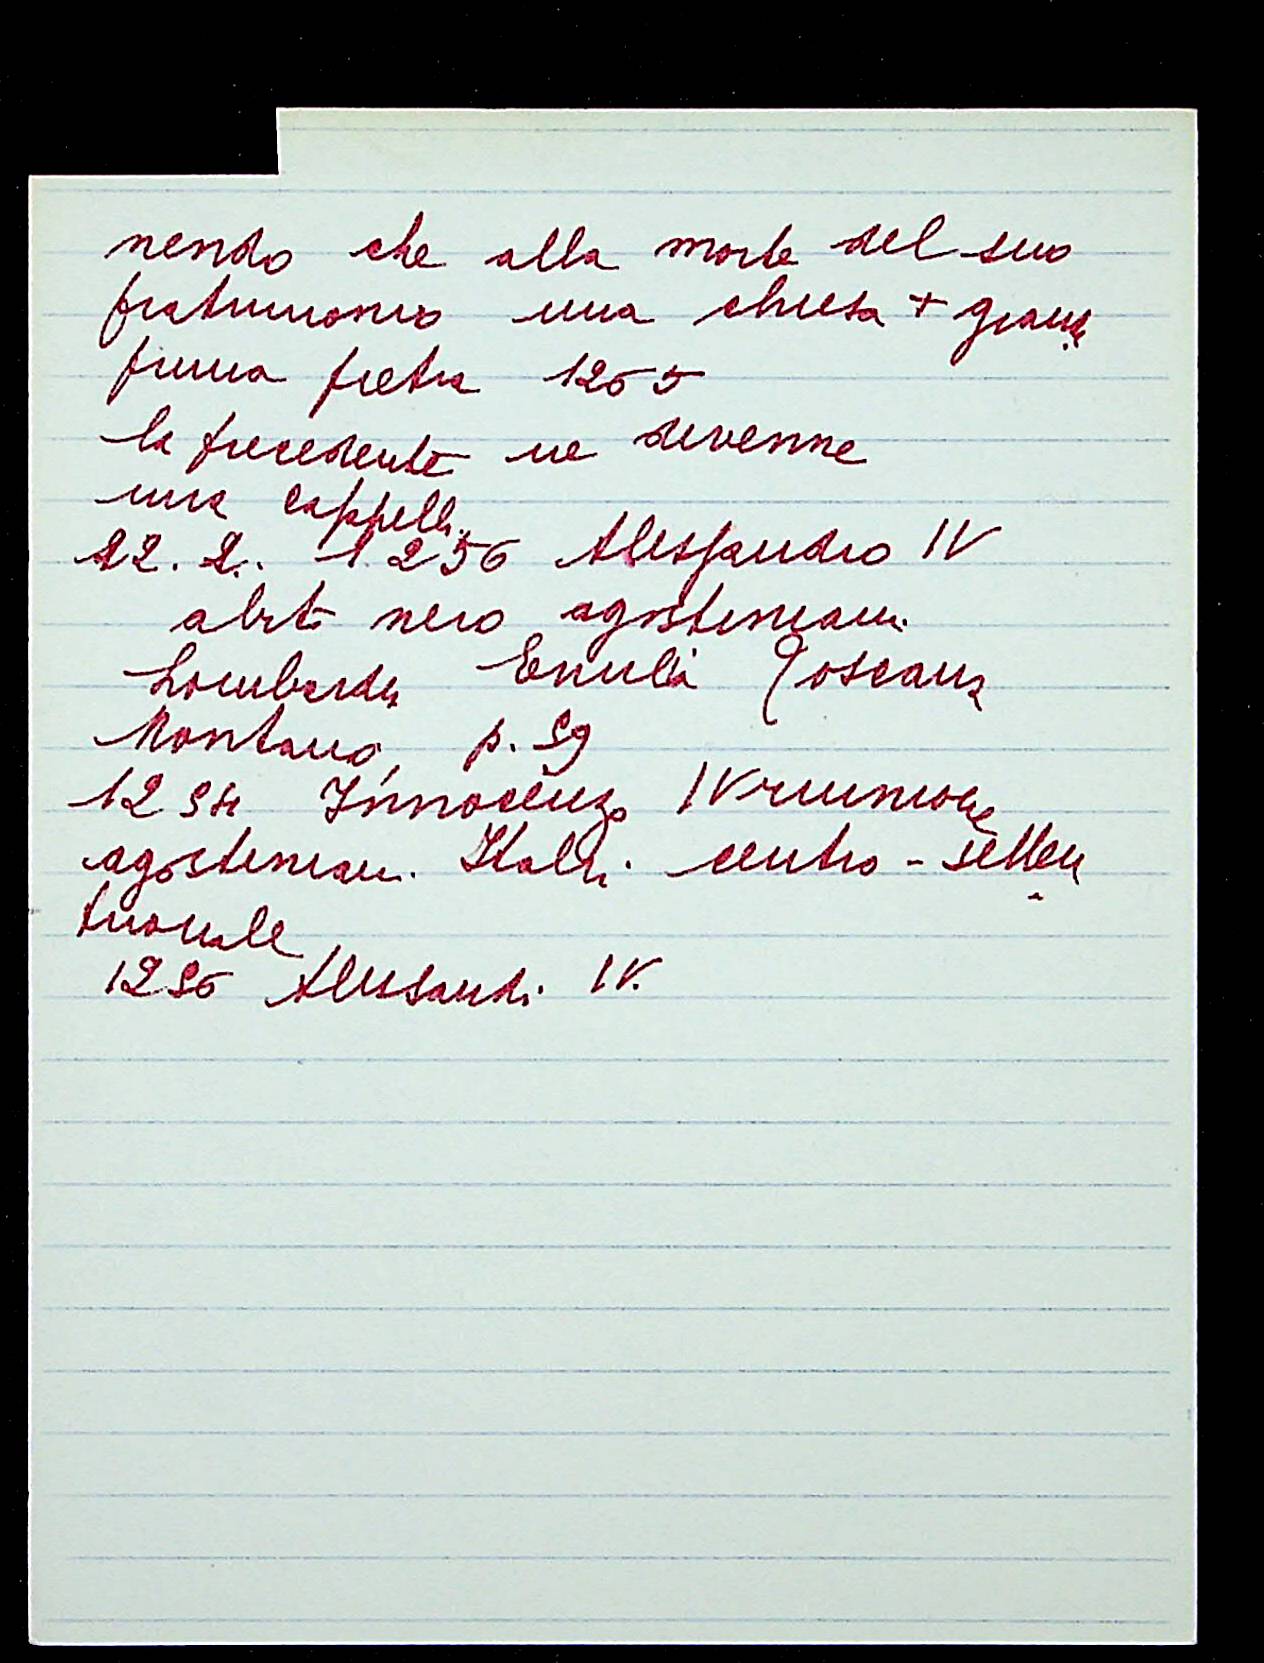 nendo che alla morte del suo
patrimonio una chiesa + grande
prima pietra 1265
la precedente ne divenne
una cappella
22. 2. 1256 Alessandro IV
abito nero agostiniani
Lombardia Emilia Toscana
Montano, p. 59
1254 Innocenzo IV riunione
agostiniani Italia centro-setten
trionale
1256 Alessandro IV.